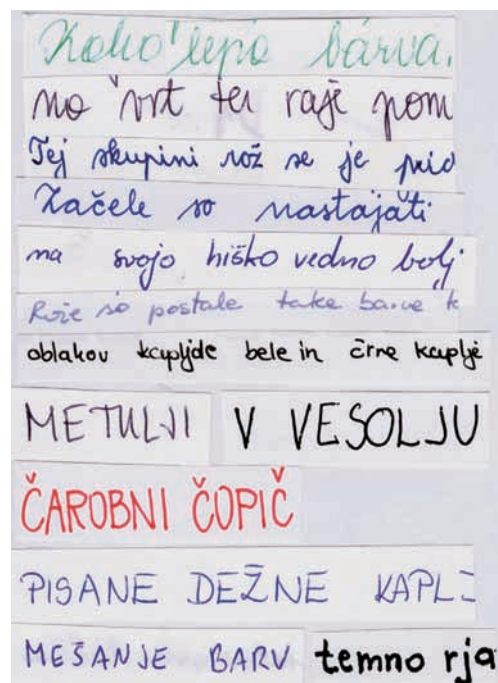 Kako lepo barva.
na vrt ter raje pom
Tej skupini rož se je prid
Začele so nastajati
na svojo hiško vedno bolj
Rože so postale take barve k
oblakov kapljde bele in črne kaplje
METULJI V VESOLJU
ČAROBNI ČOPIČ
PISANE DEŽNE KAPLJ
MEŠANJE BARV temno rja